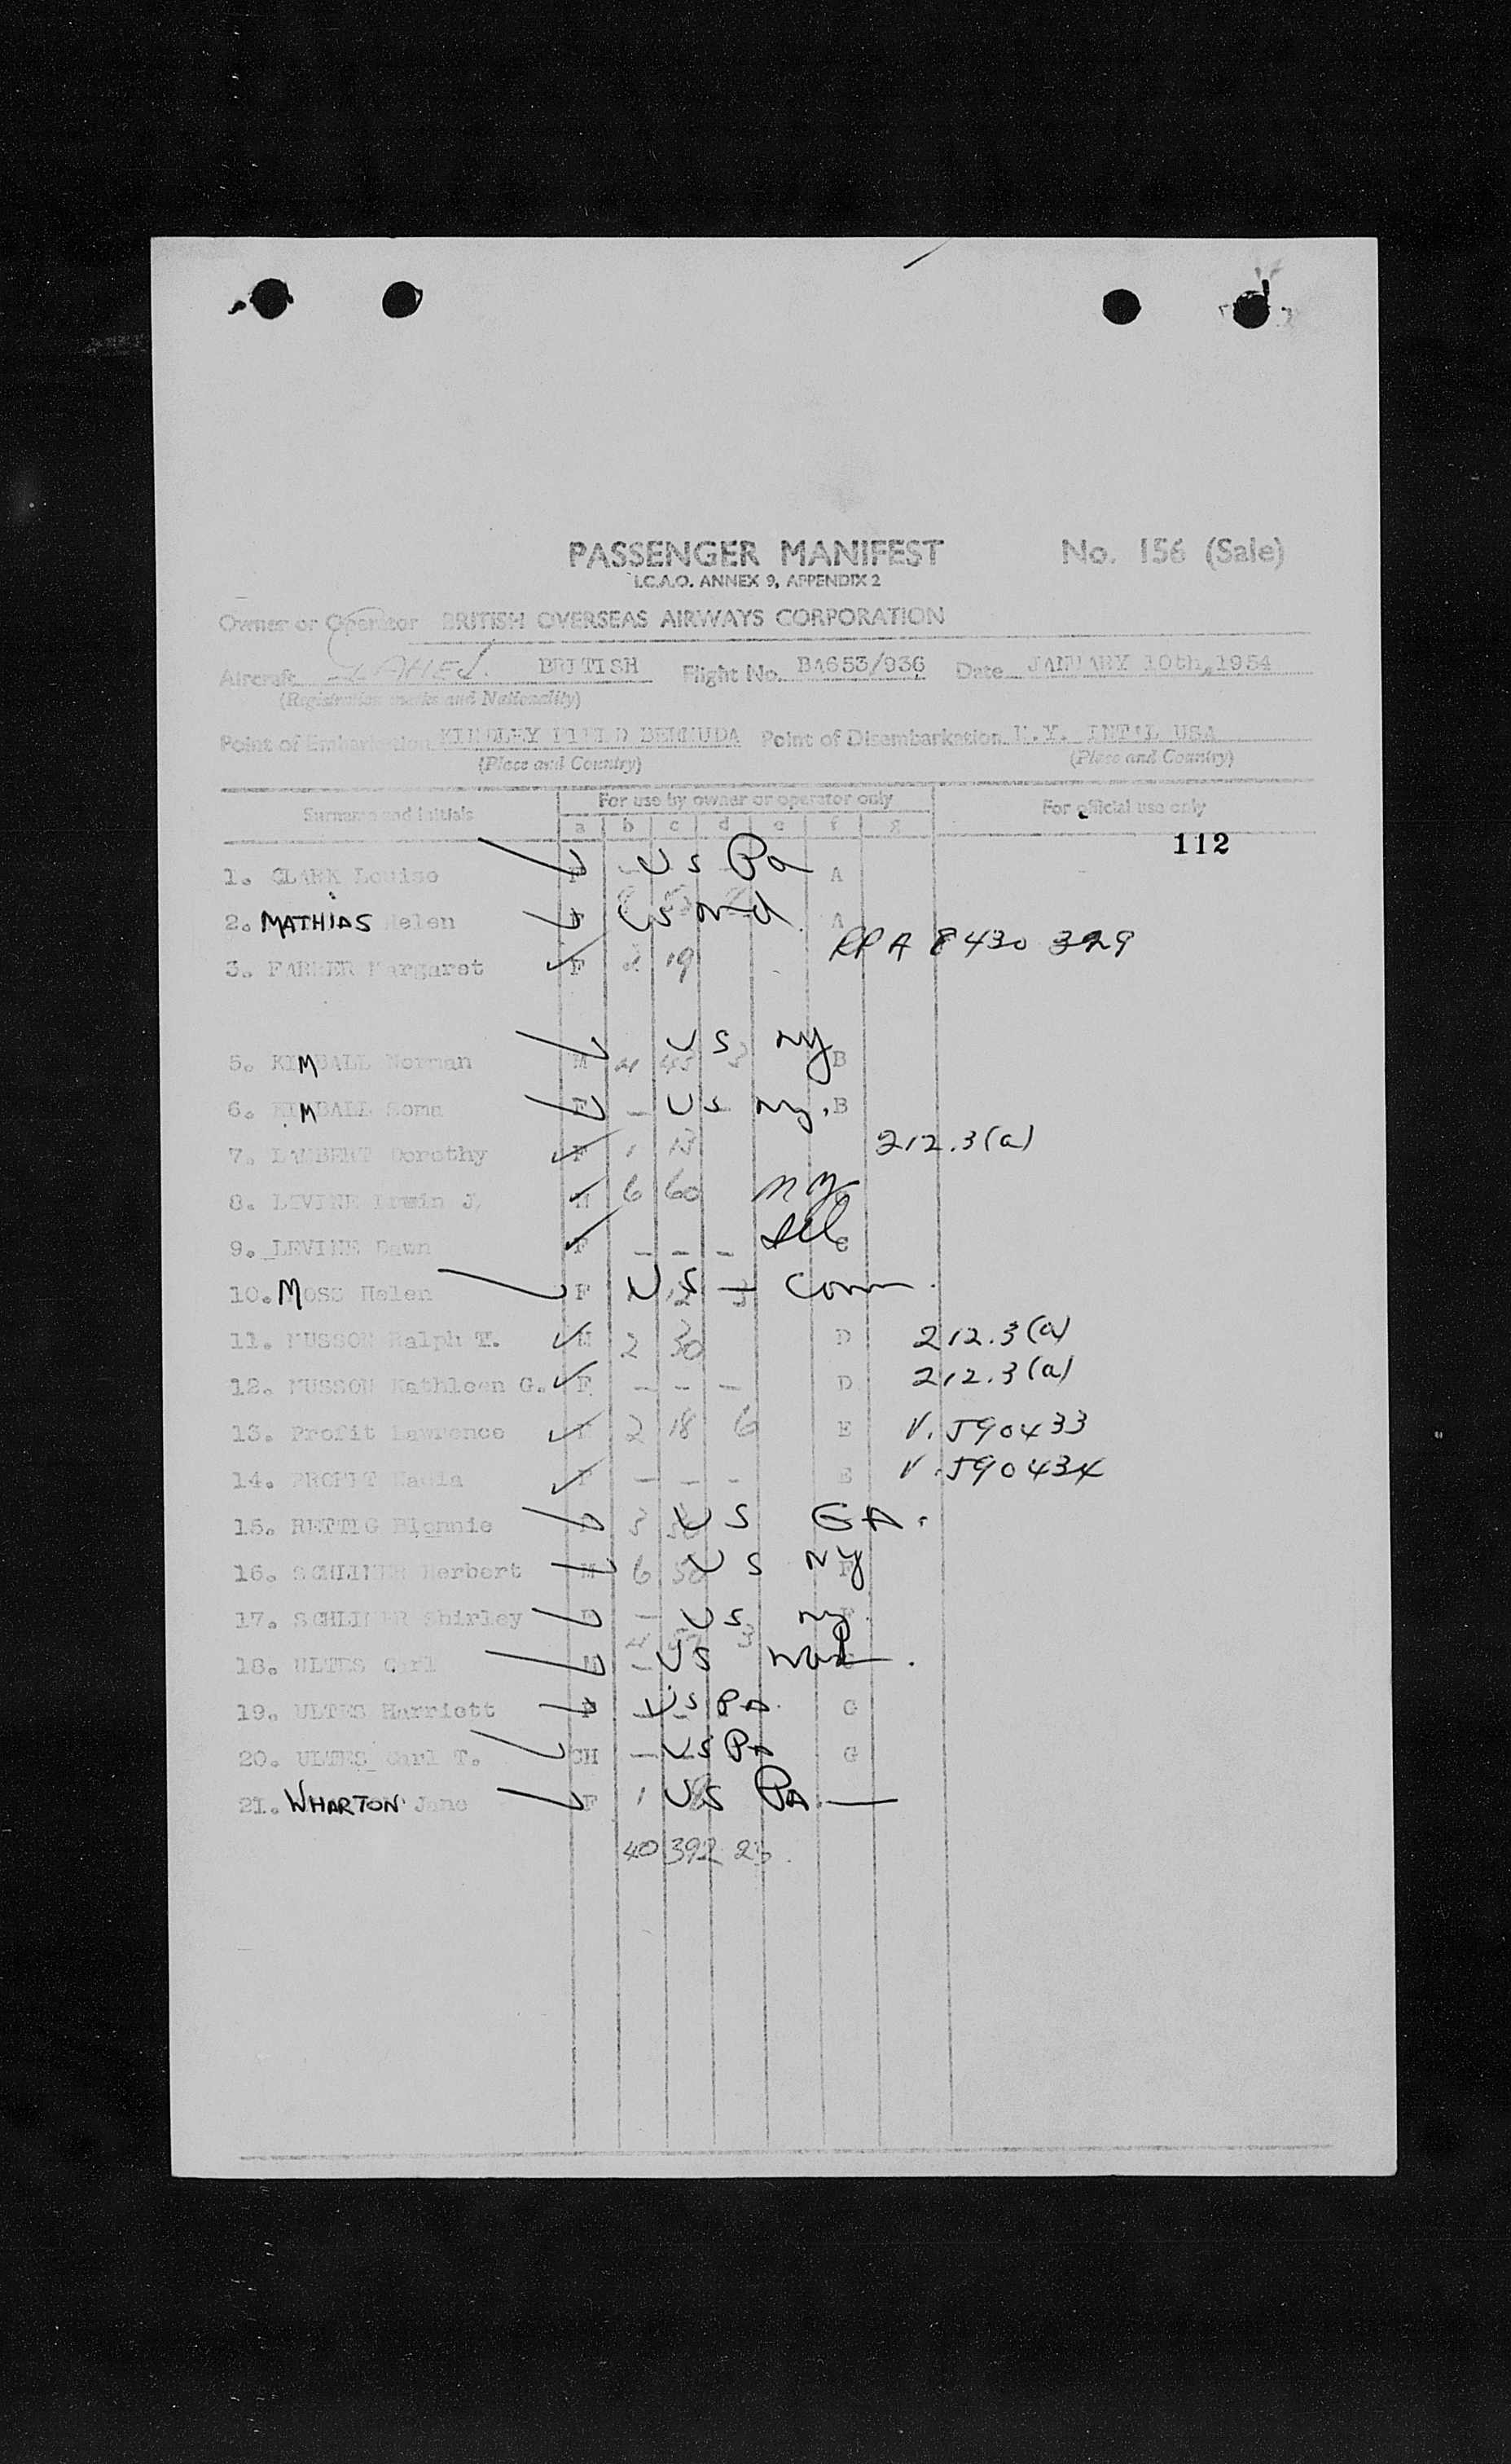 PASSENGER MANIFEST No. 156 (Sale)
I.C.A.O. ANNEX 9, APPENDIX 2
Owner or Operator BRITISH OVERSEAS AIRWAYS CORPORATION
Aircraft BRITISH Flight No. BA653/936 Date JANUARY 10th,1954
(Registration marks and Nationality)
Point of Embarkation KINDLEY FIELD BERMUDA Point of Disembarkation N.Y. INT'L USA
(Place and Country) (Place and Country)
Surname and initials For use by owner or operator only For official use only
a b c d e f g
112
1. CLARK Louise F US Pa A
2. MATHIAS Helen F US Md A
3. FARMER Margaret F 2 19 RPA 8430 329
5. KIMBALL Norman M 4 43 3 US NY B
6. KIMBALL Roma F — US NY. B
7. LAMBERT Dorothy F 1 13 212.3(a)
8. LEVINE Erwin J. M 6 60 NY
9. LEVINE Dawn F — — — C
10. MOSS Helen F US — Conn.
11. MUSSON Ralph T. M 2 30 D 212.3(a)
12. MUSSON Kathleen G. F — — — D 212.3(a)
13. Profit Lawrence 2 18 6 E V. 590433
14. PROFIT F — — — E V. 590434
15. RETTIG Blonnie 3 US GA.
16. Herbert M 6 50 US NY F
17. Shirley F — US NY. F
18. ULTES Carl M — US
19. ULTES Harriett F US PA. G
20. ULTES Carl T. CH — US PA G
21. WHARTON Jane F 1 US PA. —
40 392 23.